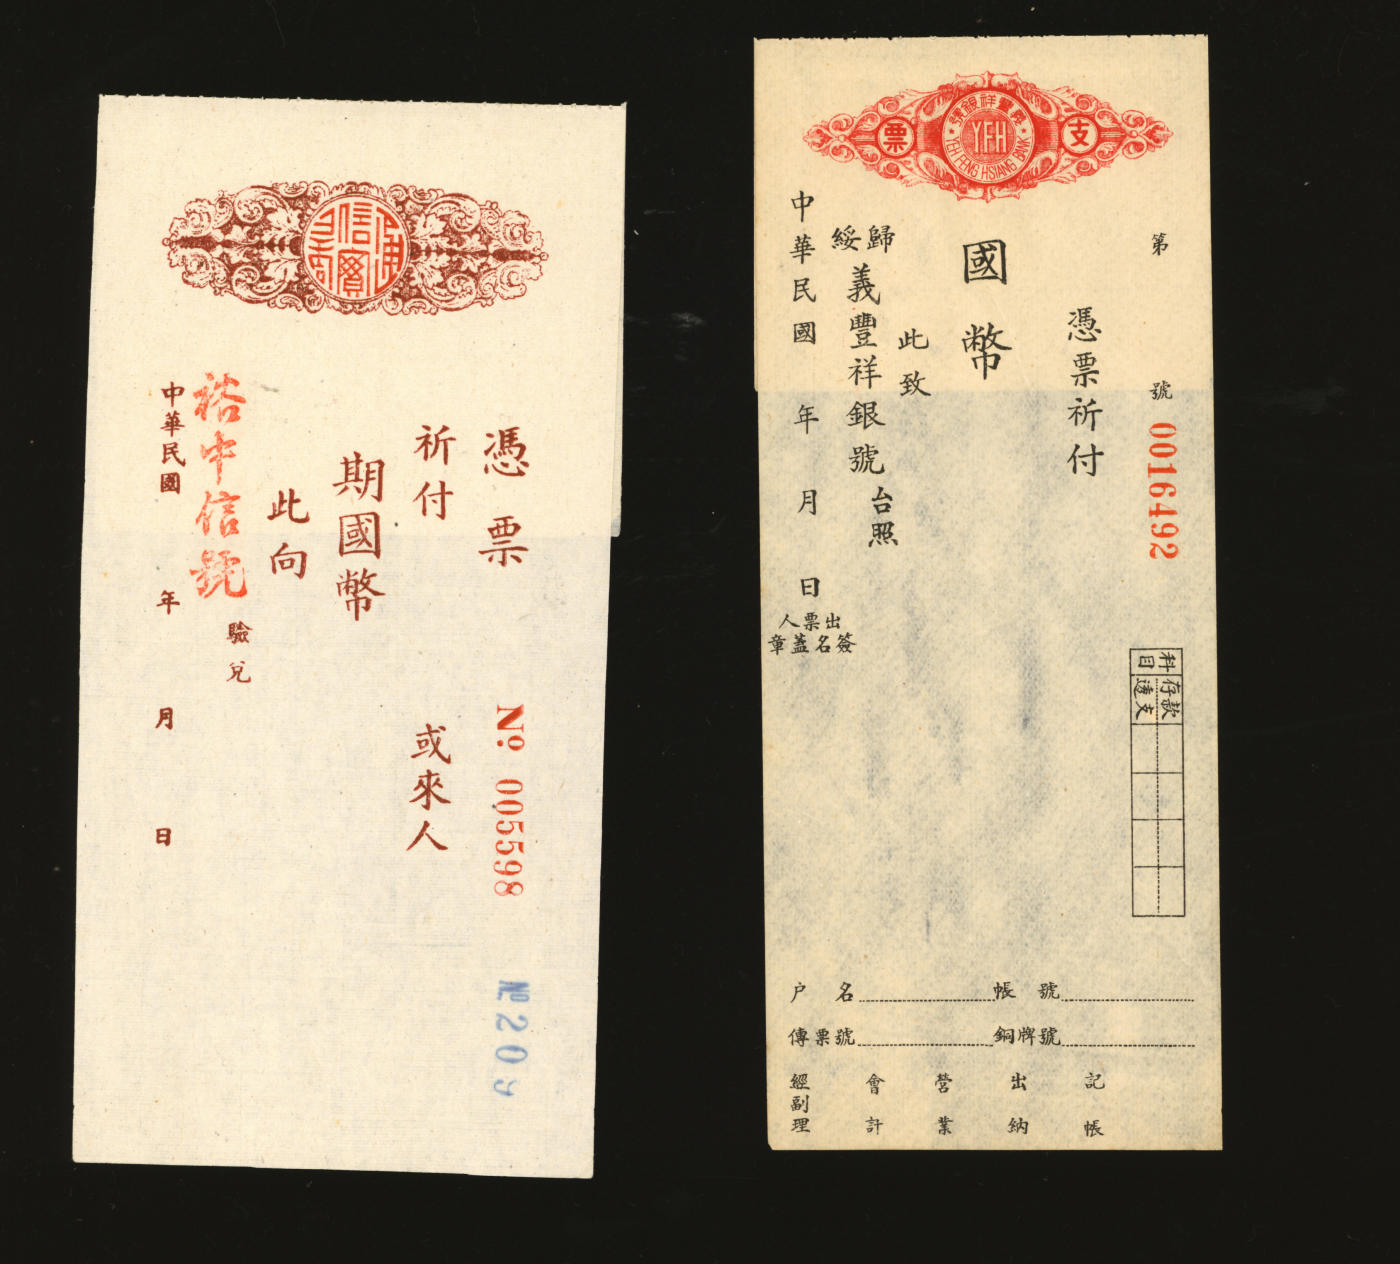 憑票
№ 005598
№ 209
祈付
或來人
期國幣
此向
裕中信號
驗兌
中華民國 年 月 日
支票
義豐祥銀號
YFH
YEH FENG HSIANG BANK
第 號 0016492
憑票祈付
國幣
此致
歸綏
義豐祥銀號
台照
中華民國 年 月 日
出票人
簽名蓋章
科目
存款
透支
户名 帳號
傳票號 銅牌號
經副理 會計 營業 出納 記帳